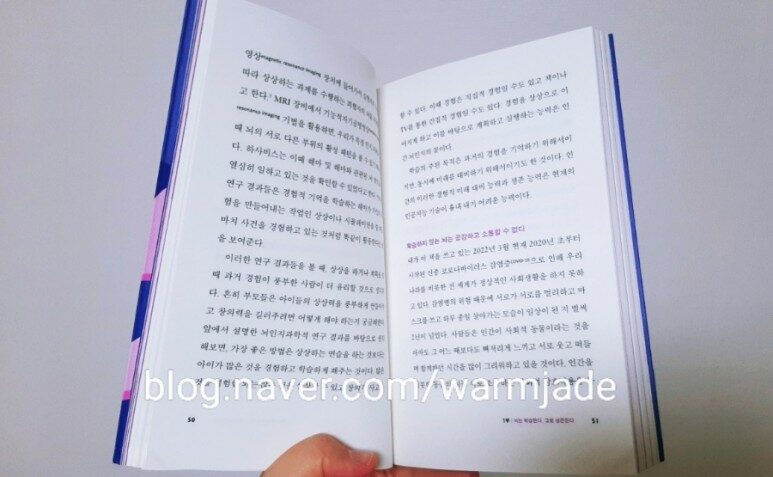 영상magnetic resonance imaging 장치에 들어가서
따라 상상하는 과제를 수행하는
고 한다. MRI 장비에서
resonance imaging 기법을 활용하면,
때 뇌의 서로 다른 부위의 활성 패턴을 볼 수
다. 하사비스는 이때 해마 및 해마와 관련된 뇌
열심히 일하고 있는 것을 확인할 수 있었다고 한다.
연구 결과들은 경험적 기억을 학습하는 해마가
험을 만들어내는 작업인 상상이나 시뮬레이션을
마치 사건을 경험하고 있는 것처럼 똑같이 활용한다는
을 보여준다.
이러한 연구 결과들을 볼 때, 상상을 하거나
때 과거 경험이 풍부한 사람이 더 유리할 것으로
다. 흔히 부모들은 아이들의 상상력을 풍부하게
고 창의력을 길러주려면 어떻게 해야 하는지 궁금해한다.
앞에서 설명한 뇌인지과학적 연구 결과를 바탕으로
해보면, 가장 좋은 방법은 상상하는 연습을 하는 것보다는
아이가 많은 것을 경험하고 학습하게 해주는 것이다.
50
할 수 있다. 이때 경험은 직접적 경험일 수도 있고 책이나
TV를 통한 간접적 경험일 수도 있다. 경험을 상상으로 이
어지게 하고 이를 바탕으로 계획하고 실행하는 능력은 인
간 뇌인지의 꽃이다.
학습의 주된 목적은 과거의 경험을 기억하기 위해서이
지만, 동시에 미래를 대비하기 위해서이기도 한 것이다. 인
간의 이러한 경험적 미래 대비 능력과 생존 능력은 현재의
인공지능 기술이 흉내 내기 어려운 능력이다.
학습하지 않는 뇌는 공감하고 소통할 수 없다
내가 이 책을 쓰고 있는 2022년 3월 현재 2020년 초부터
시작된 신종 코로나바이러스 감염증COVID-19으로 인해 우리
나라를 비롯한 전 세계가 정상적인 사회생활을 하지 못하
고 있다. 감염병의 위험 때문에 서로가 서로를 멀리하고 마
스크를 쓰고 하루 종일 살아가는 모습이 일상이 된 지 벌써
2년이 넘었다. 사람들은 인간이 사회적 동물이라는 것을
아마도 그 어느 때보다도 뼈저리게 느끼고 서로 웃고 떠들
며 함께하던 시간을 많이 그리워하고 있을 것이다. 인간을
blog.naver.com/warmjade
1부 | 뇌는 학습한다, 고로 생존한다
51